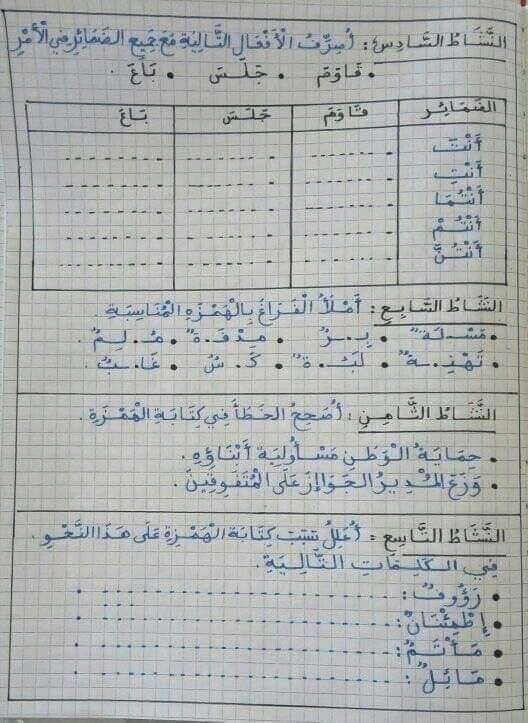 النَّشَاطُ السَّادِسُ : أُصَرِّفُ الْأَفْعَالَ التَّالِيَةَ مَعَ جَمِيعِ الضَّمَائِرِ فِي الْأَمْرِ
• قَاوَمَ • جَلَسَ • بَاعَ .
الضَّمَائِر قَاوَمَ جَلَسَ بَاعَ
أَنْتَ
أَنْتِ
أَنْتُمَا
أَنْتُمْ
أَنْتُنَّ
النَّشَاطُ السَّابِعُ : أَمْلَأُ الْفَرَاغَ بِالْهَمْزَةِ الْمُنَاسِبَةِ .
• مَسْـ..ـلَةٌ • بِـ..ـرٌ • مِدْفَـ..ـةٌ • مُـ..ـلِمٌ .
• تَهْنِـ..ـةٌ • لَبُـ..ـةٌ • كَـ..ـسٌ • عَا..بٌ .
النَّشَاطُ الثَّامِنُ : أُصَحِّحُ الْخَطَأَ فِي كِتَابَةِ الْهَمْزَةِ .
• حِمَايَةُ الْوَطَنِ مَسْأُولِيَة أَبْنَاؤِهِ .
• وَزَعَ الْمُدِيرُ الْجَوَاإِزَ عَلَى الْمُتَفَوِّقِينَ .
النَّشَاطُ التَّاسِع : أُعَلِّلُ سَبَبَ كِتَابَةِ الْهَمْزَةِ عَلَى هَذَا النَّحْوِ
فِي الْكَلِمَاتِ التَّالِيَةِ .
• رَؤُوفٌ :
• اِطْمِئْنَانٌ :
• مَأْتَمٌ :
• مَائِلٌ :